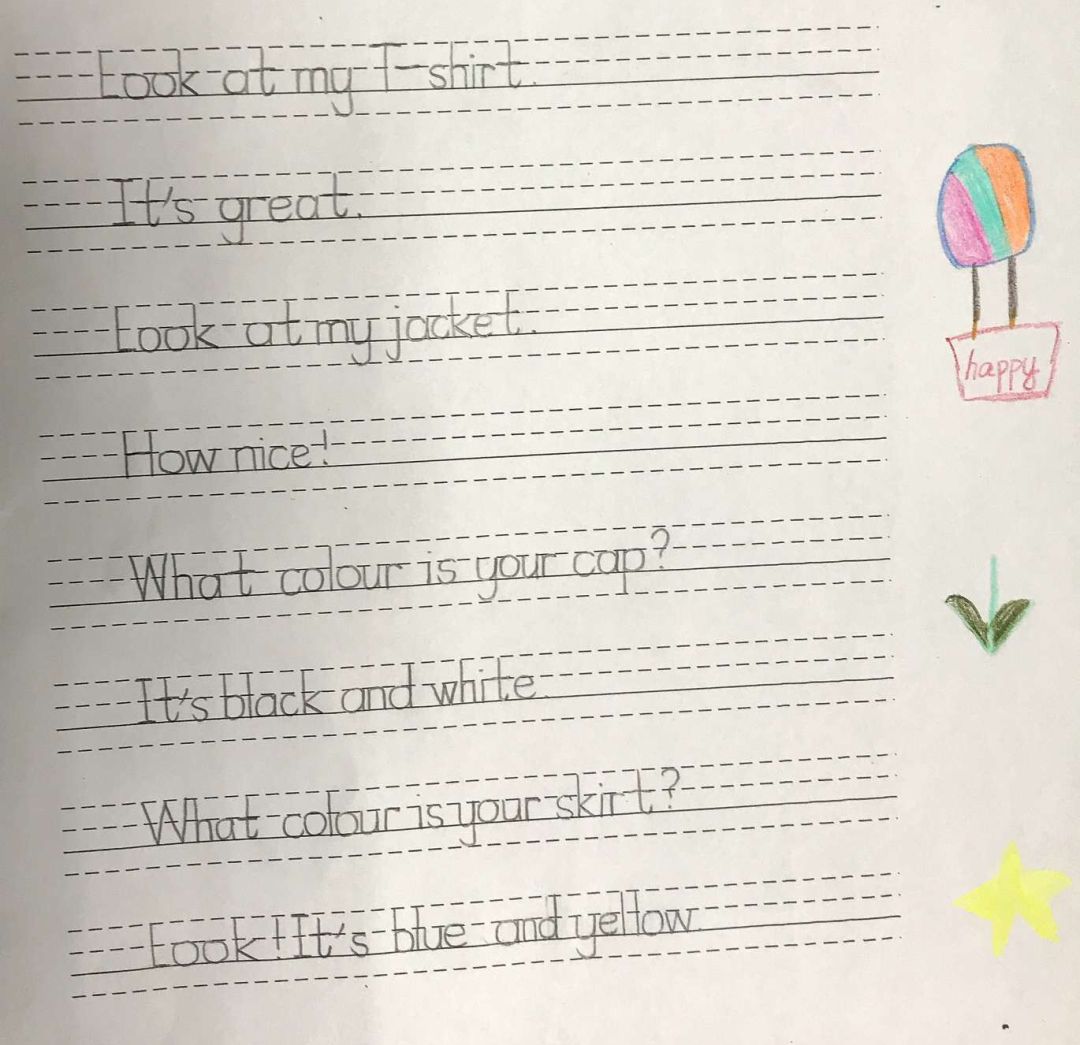 Look at my T-shirt.
It's great.
Look at my jacket.
happy
How nice!
What colour is your cap?
It's black and white.
What colour is your skirt?
Look! It's blue and yellow.